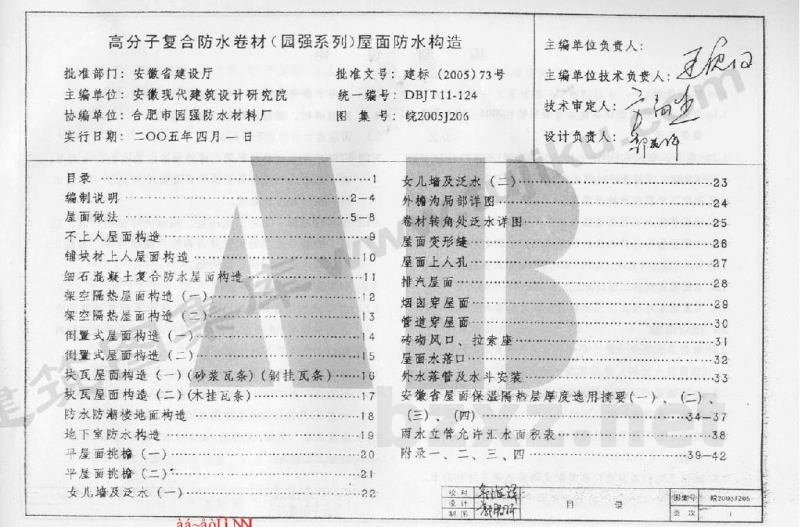 高分子复合防水卷材(园强系列)屋面防水构造
批准部门: 安徽省建设厅 批准文号: 建标(2005)73号
主编单位: 安徽现代建筑设计研究院 统一编号: DBJT11-124
协编单位: 合肥市园强防水材料厂 图集号: 皖2005J206
实行日期: 二〇〇五年四月一日
主编单位负责人:
主编单位技术负责人:
技术审定人:
设计负责人:
目录 1
编制说明 2-4
屋面做法 5-8
不上人屋面构造 9
铺块材上人屋面构造 10
细石混凝土复合防水屋面构造 11
架空隔热屋面构造(一) 12
架空隔热屋面构造(二) 13
倒置式屋面构造(一) 14
倒置式屋面构造(二) 15
块瓦屋面构造(一)(砂浆瓦条)(钢挂瓦条) 16
块瓦屋面构造(二)(木挂瓦条) 17
防水防潮楼地面构造 18
地下室防水构造 19
平屋面挑檐(一) 20
平屋面挑檐(二) 21
女儿墙及泛水(一) 22
女儿墙及泛水(二) 23
外檐沟局部详图 24
卷材转角处泛水详图 25
屋面变形缝 26
屋面上人孔 27
排汽屋面 28
烟囱穿屋面 29
管道穿屋面 30
砖砌风口、拉索座 31
屋面水落口 32
外水落管及水斗安装 33
安徽省屋面保温隔热层厚度选用摘要(一)、(二)、
(三)、(四) 34-37
雨水立管允许汇水面积表 38
附录一、二、三、四 39-42
校对
设计
制图
目录
图集号 皖2005J206
页次 1